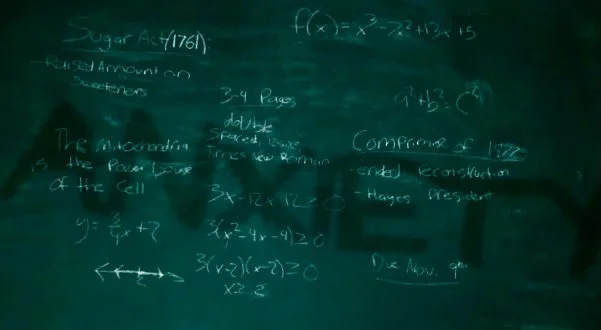 Sugar Act (1761):
- Raised Amount on
Sweeteners
f(x) = x³ - 7x² + 13x + 5
3-4 Pages
double
Spaced,
Times New Roman
a² + b² =
The Mitochondria
is the Power house
of the Cell
Compromise of
- ended reconstruction
- Hayes President
y = 3/4 x + 7
3x - 12x - 12 ≥ 0
3(x² - 4x - 4) ≥ 0
3(x-2)(x-2) ≥ 0
x ≥ 2
2
Due Nov. 9th
ANXIETY